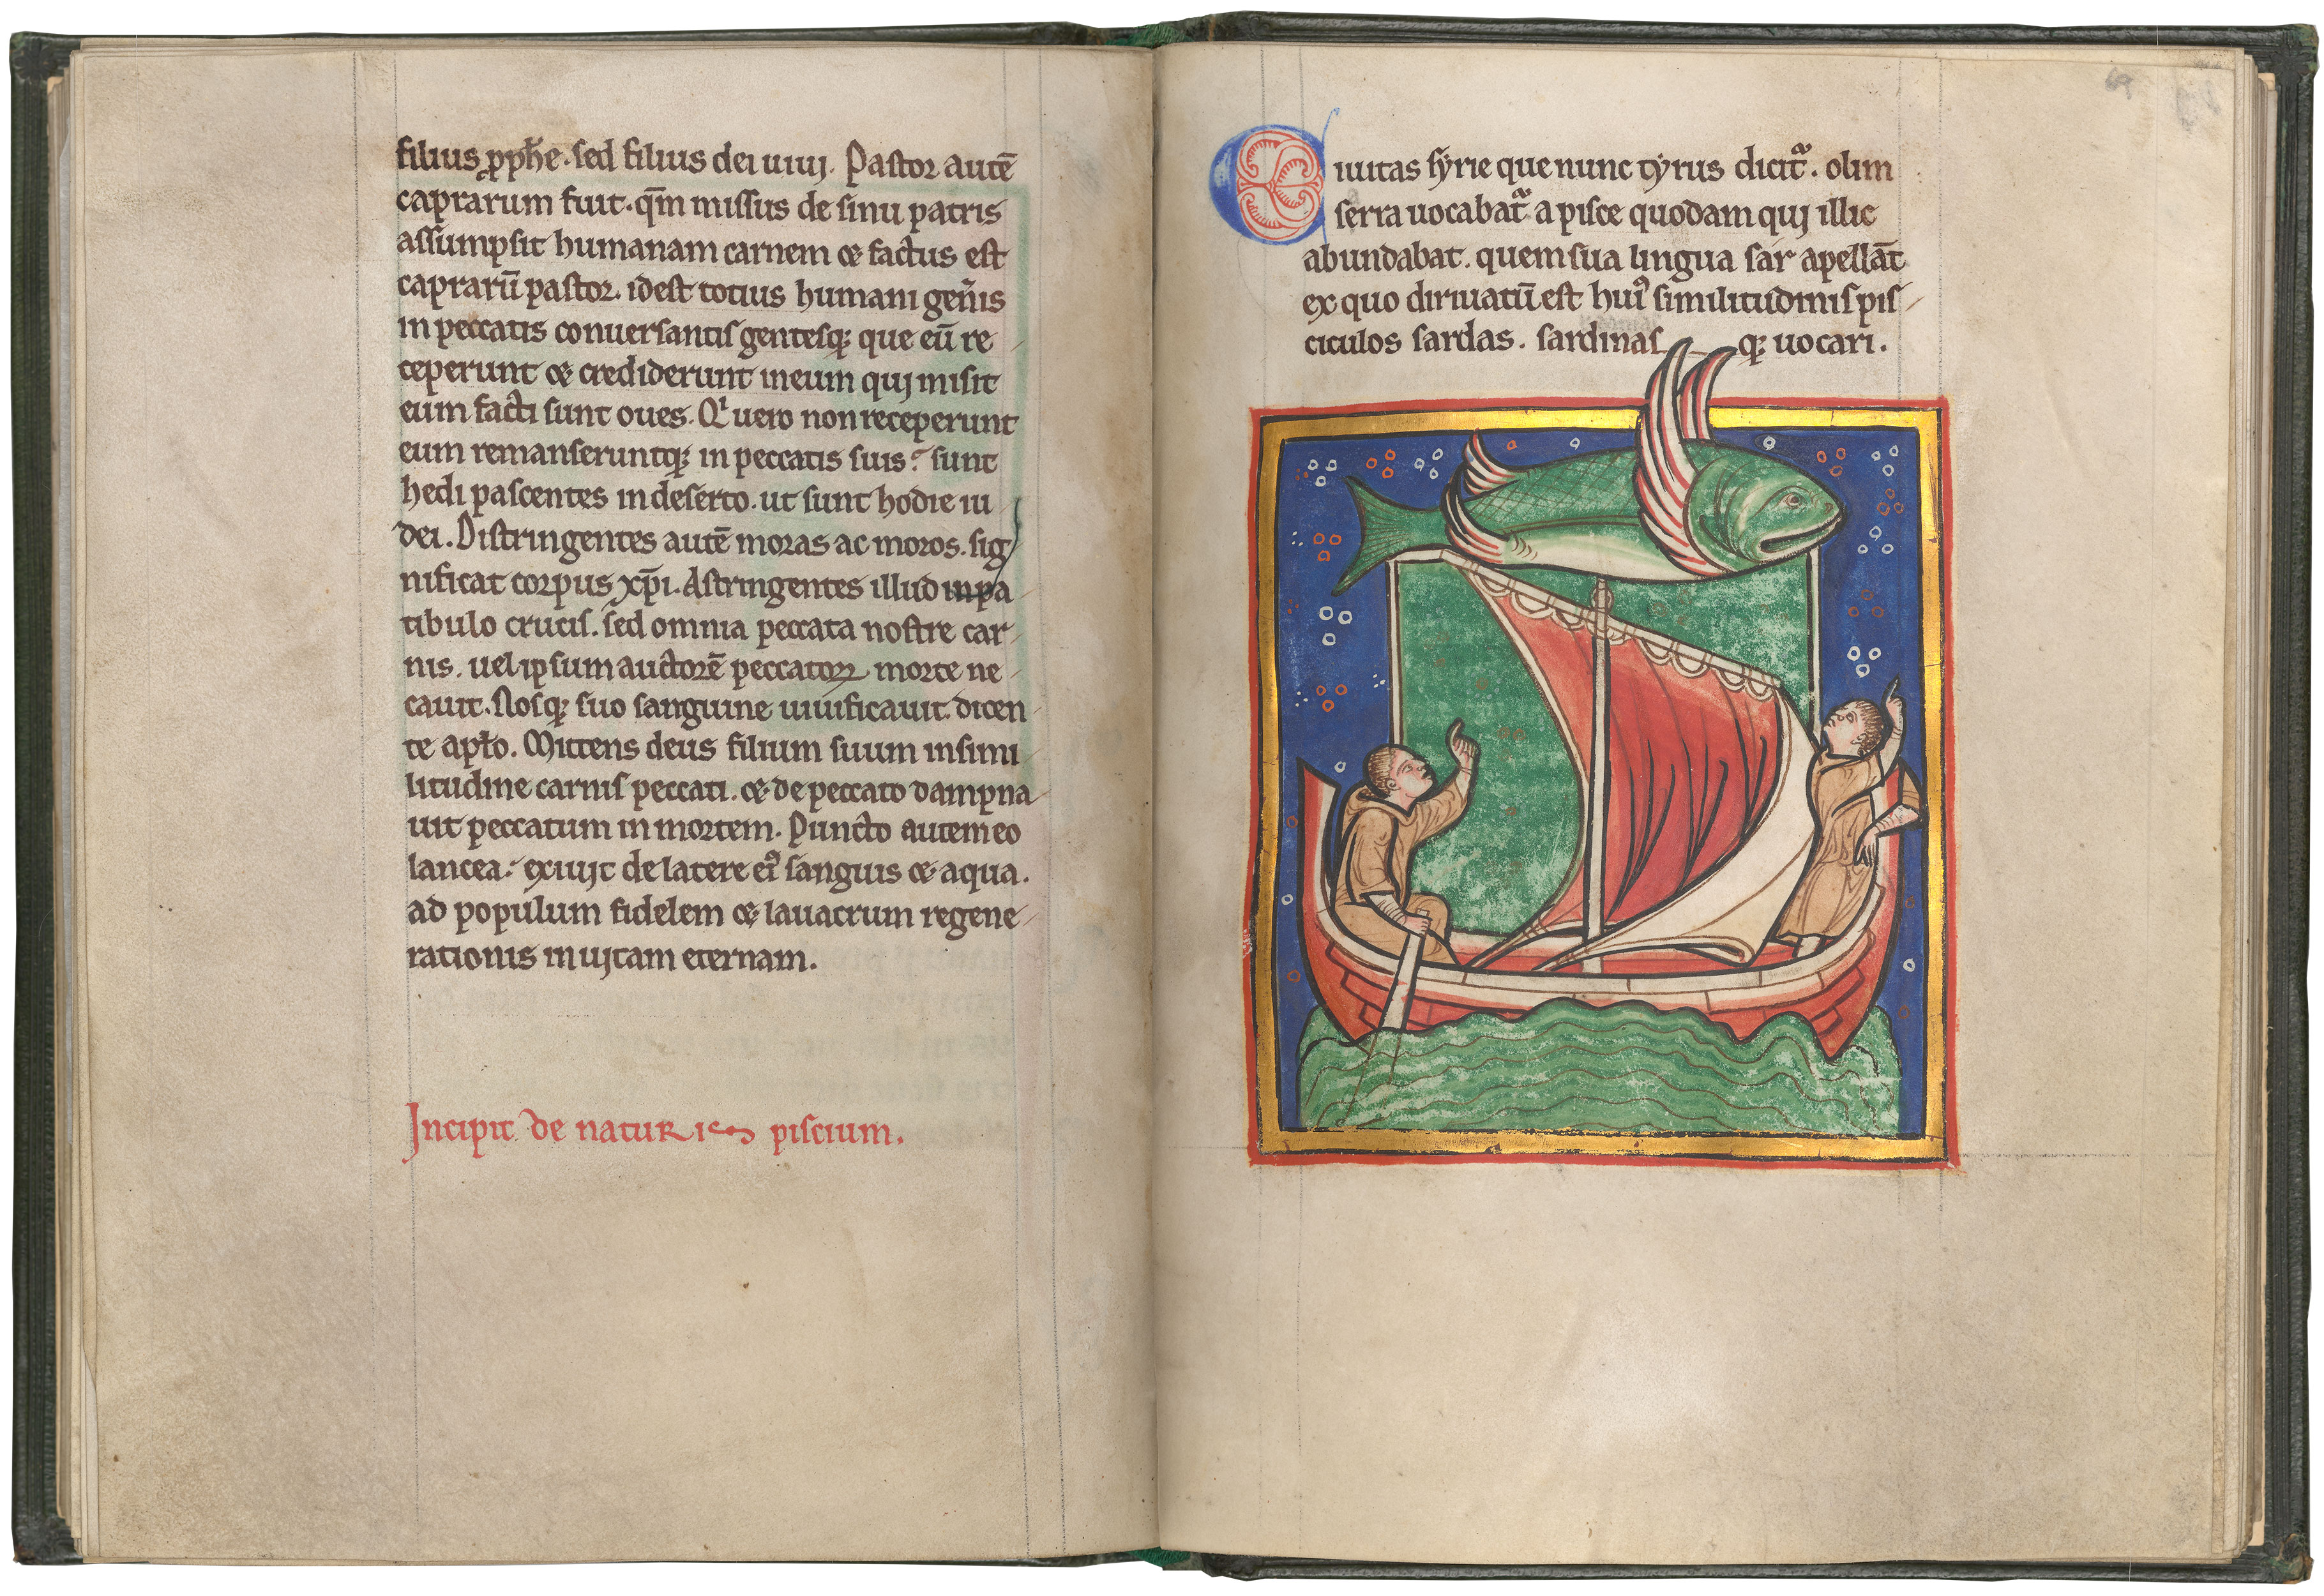 filius ꝓph̄e. sed filius dei uiuj. Pastor autē
caprarum fuit. qm̄ missus de sinu patris
assumpsit humanam carnem ⁊ factus est
caprarū pastor. idest totius humani gen̄is
in peccatis conuersantis gentesq; que eū re
ceperunt ⁊ crediderunt in eum quj misit
eum facti sunt oues. Qⁱ uero non receperunt
eum remanseruntq; in peccatis suis: sunt
hedi pascentes in deserto. ut sunt hodie iu
dei. Distringentes autē moras ac moros. sig
nificat corpus xp̄i. Astringentes illud in pa
tibulo crucis. sed omnia peccata nostre car
nis. uel ipsum auctorē peccatoꝝ morte ne
cauit. Nosq; suo sanguine uiuificauit. dicen
te apło. Mittens deus filium suum in simi
litudine carnis peccati. ⁊ de peccato dampna
uit peccatum in mortem. Puncto autem eo
lancea: exiujt de latere eiꝰ sanguis ⁊ aqua.
ad populum fidelem ⁊ lauacrum regene
rationis in ujtam eternam.
Incipit de naturis piscium.
Ciuitas syrie que nunc tyrus dicitᷓ. olim
serra uocabatᷓ a pisce quodam quj illic
abundabat. quem sua lingua sar apellāt
ex quo diriuatū est huiꝰ similitudinis pis
ciculos sardas. sardinas q; uocari.